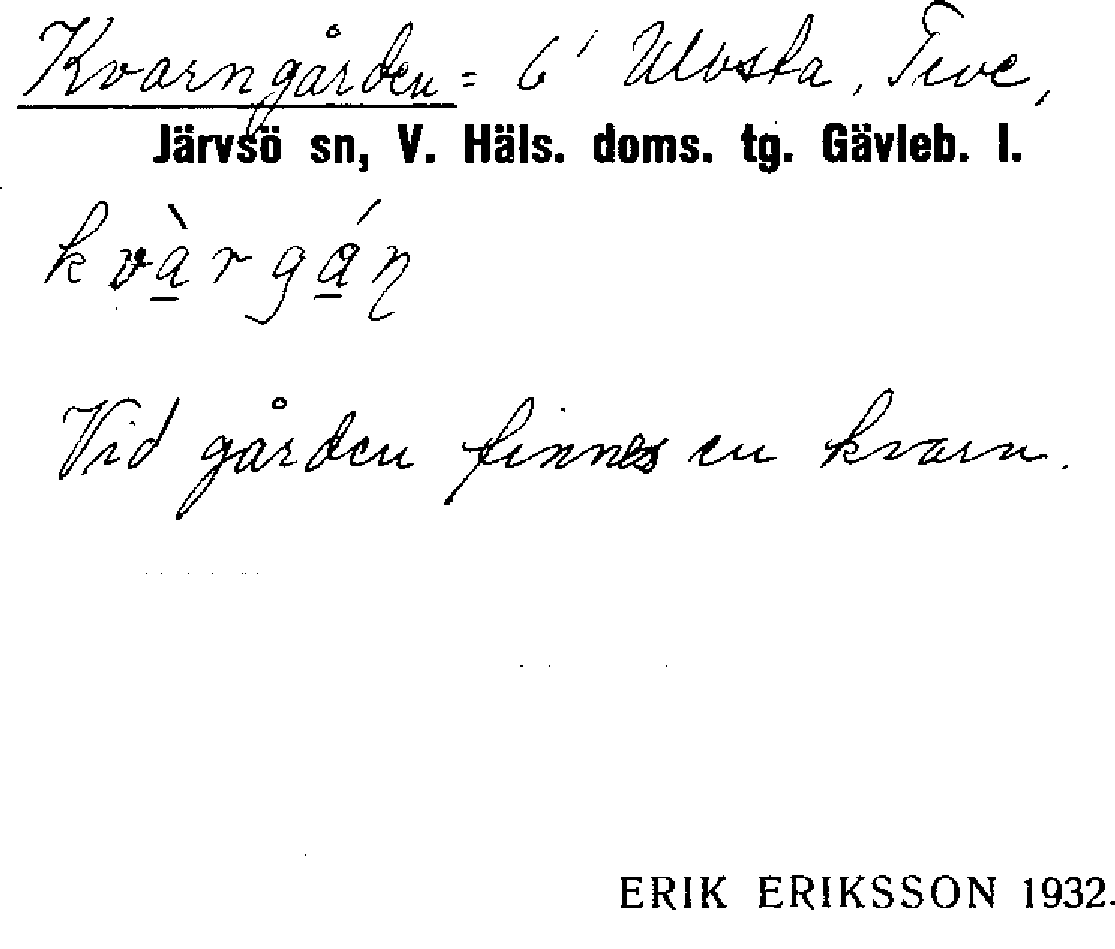 Kvarngården = 6' Ulvsta, Teve,
Järvsö sn, V. Häls. doms. tg. Gävleb. l.
kvàrgáŋ
Vid gården finnes en kvarn.
ERIK ERIKSSON 1932.